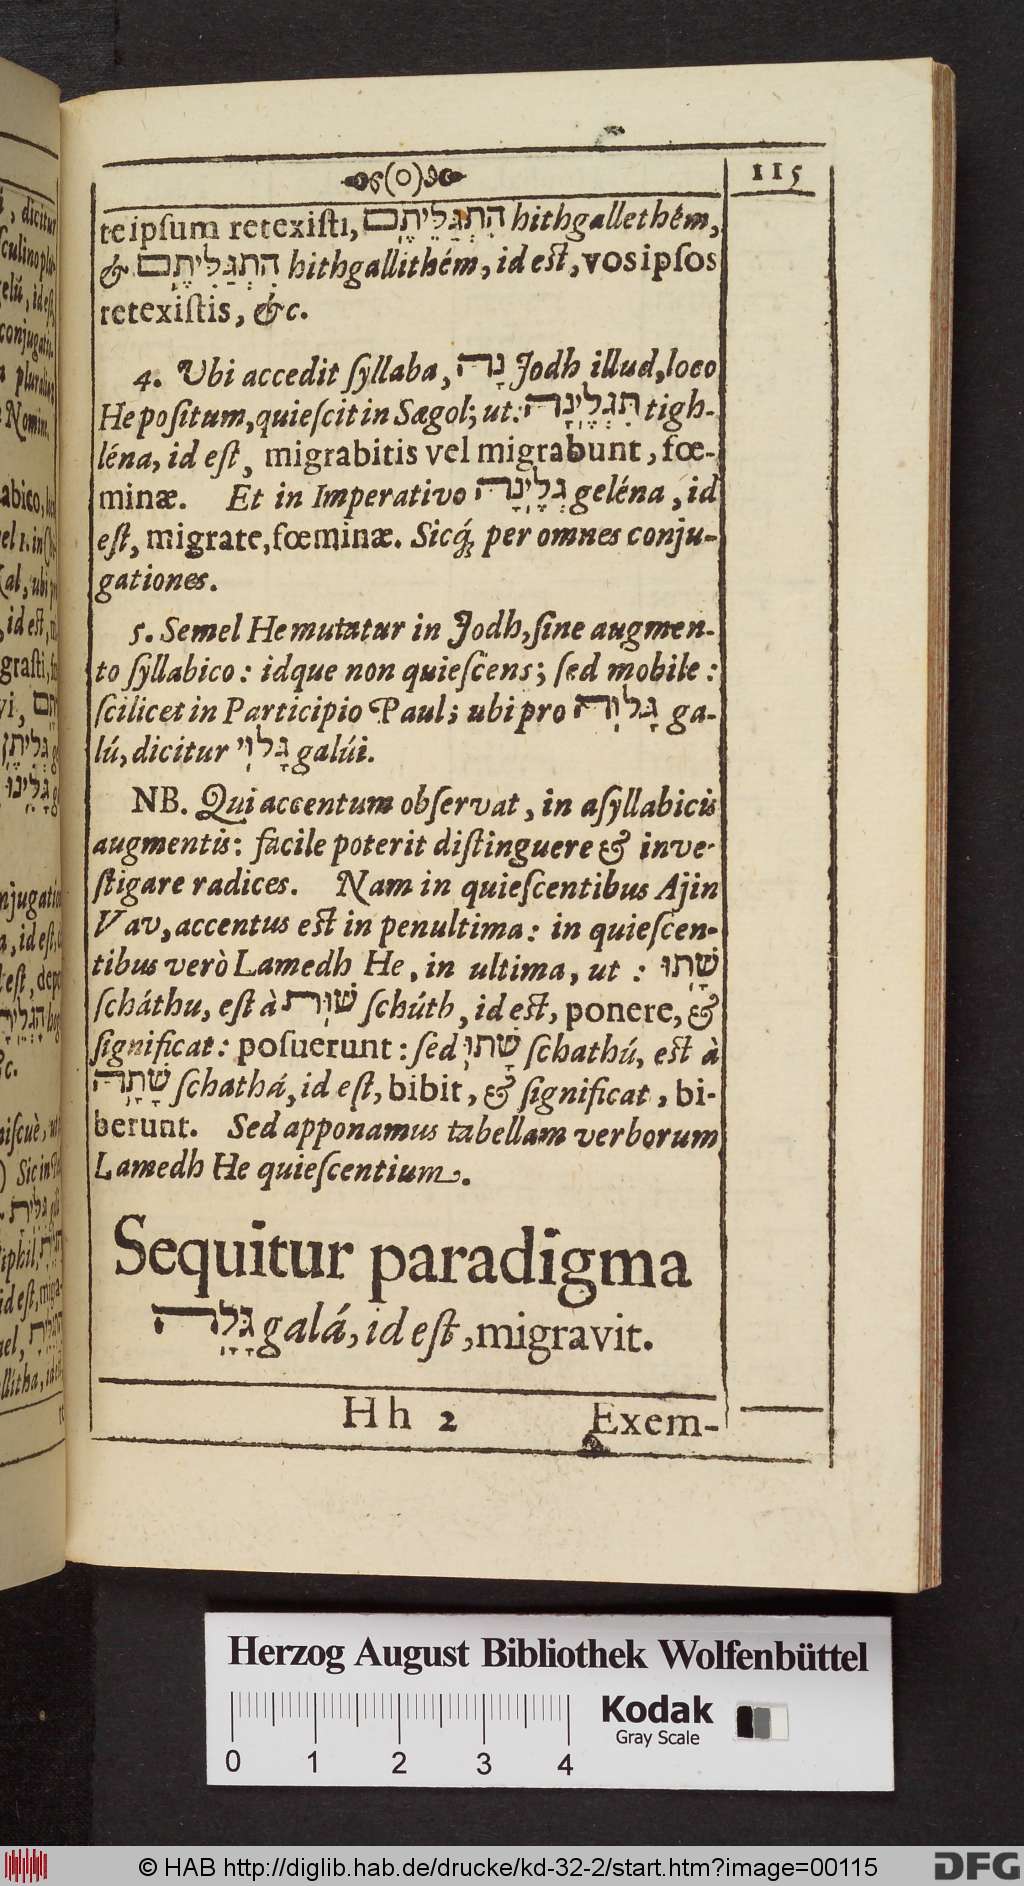 115
teipſum retexiſti, הִתְגַּלֵּיתֶם hithgallethém,
& הִתְגַּלִּיתֶם hithgallithém, id eſt, vos ipſos
retexiſtis, &c.
4. Ubi accedit ſyllaba, נָה Jodh illud, loco
He poſitum, quieſcit in Sægol; ut: תִּגְלֶינָה tigh-
léna, id eſt, migrabitis vel migrabunt, fœ-
minæ. Et in Imperativo גְּלֶינָה geléna, id
eſt, migrate, fœminæ. Sicq́; per omnes conju-
gationes.
5. Semel He mutatur in Jodh, ſine augmen-
to ſyllabico: idque non quieſcens; ſed mobile:
ſcilicet in Participio Paul; ubi pro גָּלוּה ga-
lú, dicitur גָּלוּי galúi.
NB. Qui accentum obſervat, in aſyllabicis
augmentis: facile poterit diſtinguere & inve-
ſtigare radices. Nam in quieſcentibus Ajin
Vav, accentus eſt in penultima: in quieſcen-
tibus verò Lamedh He, in ultima, ut: שָׁתוּ
ſcháthu, eſt à שׁוּת ſchúth, id eſt, ponere, &
ſignificat: poſuerunt: ſed שָׁתוּ ſchathú, eſt à
שָׁתָה ſchathá, id eſt, bibit, & ſignificat, bi-
berunt. Sed apponamus tabellam verborum
Lamedh He quieſcentium.
Sequitur paradigma
גָּלָה galá, id eſt, migravit.
Hh 2 Exem-
Herzog August Bibliothek Wolfenbüttel
Kodak
Gray Scale
0 1 2 3 4
© HAB http://diglib.hab.de/drucke/kd-32-2/start.htm?image=00115
DFG